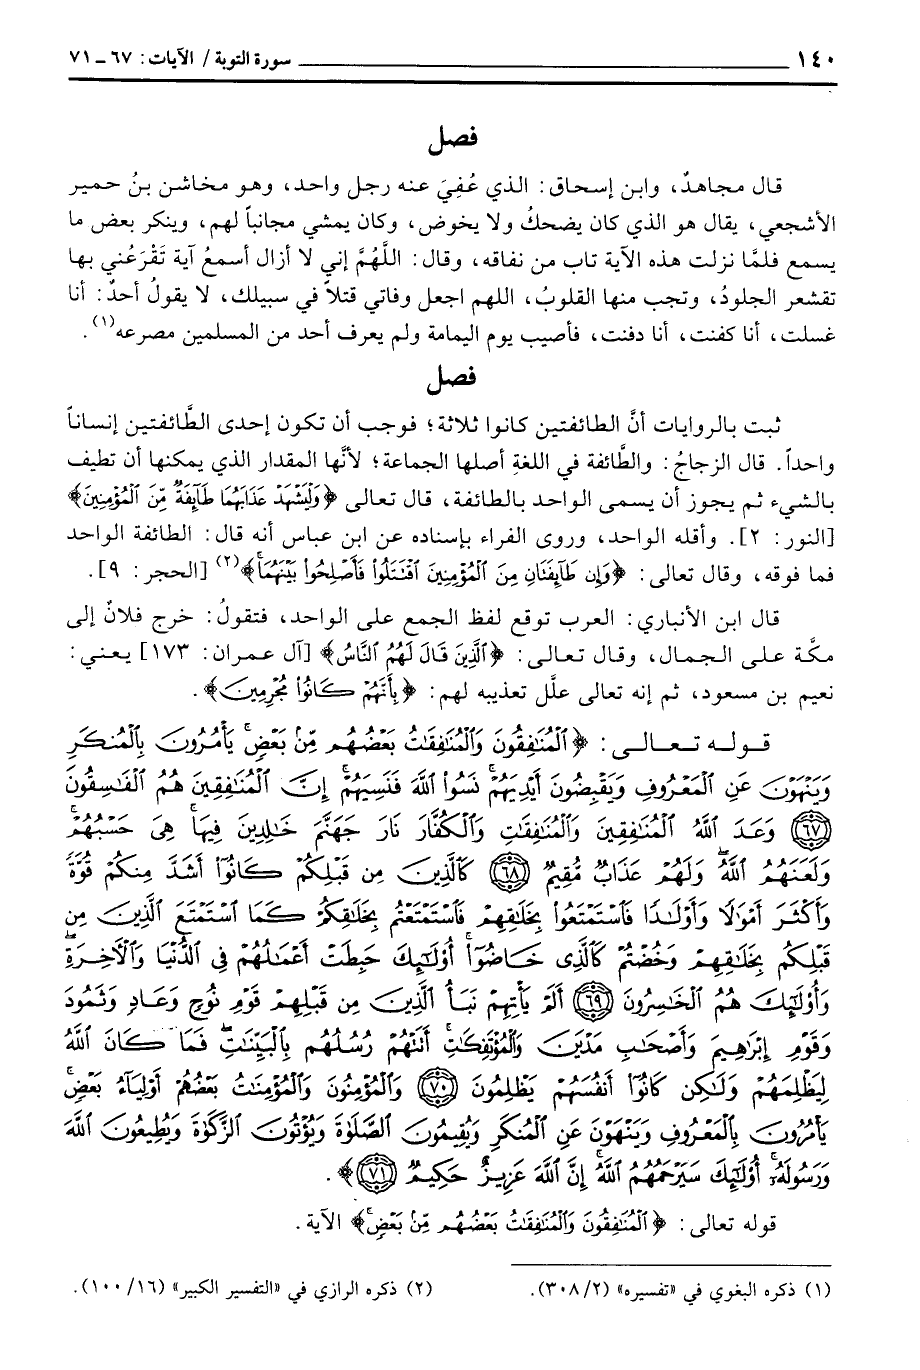 ١٤٠ سورة التوبة / الآيات: ٦٧ ـ ٧١
فصل
قال مجاهدٌ، وابن إسحاق: الذي عُفِيَ عنه رجل واحد، وهو مخاشن بنُ حمير
الأشجعي، يقال هو الذي كان يضحكُ ولا يخوض، وكان يمشي مجانباً لهم، وينكر بعض ما
يسمع فلمَّا نزلت هذه الآية تاب من نفاقه، وقال: اللَّهُمَّ إني لا أزال أسمعُ آية تَقْرَعُني بها
تقشعر الجلودُ، وتجب منها القلوبُ، اللهم اجعل وفاتي قتلاً في سبيلك، لا يقولُ أحدٌ: أنا
غسلت، أنا كفنت، أنا دفنت، فأصيب يوم اليمامة ولم يعرف أحد من المسلمين مصرعه(١).
فصل
ثبت بالروايات أنَّ الطائفتين كانوا ثلاثة؛ فوجب أن تكون إحدى الطَّائفتين إنساناً
واحداً. قال الزجاجُ: والطَّائفة في اللغةِ أصلها الجماعة؛ لأنَّها المقدار الذي يمكنها أن تطيف
بالشيء ثم يجوز أن يسمى الواحد بالطائفة، قال تعالى ﴿وَلْيَشْهَدْ عَذَابَهُمَا طَآئِفَةٌ مِّنَ ٱلْمُؤْمِنِينَ﴾
[النور: ٢]. وأقله الواحد، وروى الفراء بإسناده عن ابن عباس أنه قال: الطائفة الواحد
فما فوقه، وقال تعالى: ﴿وَإِن طَآئِفَتَانِ مِنَ ٱلْمُؤْمِنِينَ ٱقْتَتَلُوا۟ فَأَصْلِحُوا۟ بَيْنَهُمَا﴾(٢) [الحجر: ٩].
قال ابن الأنباري: العرب توقع لفظ الجمع على الواحد، فتقولُ: خرج فلانٌ إلى
مكَّة على الجمال، وقال تعالى: ﴿ٱلَّذِينَ قَالَ لَهُمُ ٱلنَّاسُ﴾ [آل عمران: ١٧٣] يعني:
نعيم بن مسعود، ثم إنه تعالى علَّل تعذيبه لهم: ﴿بِأَنَّهُمْ كَانُوا۟ مُجْرِمِينَ﴾.
قوله تعالى: ﴿ٱلْمُنَٰفِقُونَ وَٱلْمُنَٰفِقَٰتُ بَعْضُهُم مِّنۢ بَعْضٍ ۚ يَأْمُرُونَ بِٱلْمُنكَرِ
وَيَنْهَوْنَ عَنِ ٱلْمَعْرُوفِ وَيَقْبِضُونَ أَيْدِيَهُمْ ۚ نَسُوا۟ ٱللَّهَ فَنَسِيَهُمْ ۗ إِنَّ ٱلْمُنَٰفِقِينَ هُمُ ٱلْفَٰسِقُونَ
(٦٧) وَعَدَ ٱللَّهُ ٱلْمُنَٰفِقِينَ وَٱلْمُنَٰفِقَٰتِ وَٱلْكُفَّارَ نَارَ جَهَنَّمَ خَٰلِدِينَ فِيهَا ۚ هِىَ حَسْبُهُمْ ۚ
وَلَعَنَهُمُ ٱللَّهُ ۖ وَلَهُمْ عَذَابٌ مُّقِيمٌ (٦٨) كَٱلَّذِينَ مِن قَبْلِكُمْ كَانُوٓا۟ أَشَدَّ مِنكُمْ قُوَّةً
وَأَكْثَرَ أَمْوَٰلًا وَأَوْلَٰدًا فَٱسْتَمْتَعُوا۟ بِخَلَٰقِهِمْ فَٱسْتَمْتَعْتُم بِخَلَٰقِكُمْ كَمَا ٱسْتَمْتَعَ ٱلَّذِينَ مِن
قَبْلِكُم بِخَلَٰقِهِمْ وَخُضْتُمْ كَٱلَّذِى خَاضُوٓا۟ ۚ أُو۟لَٰٓئِكَ حَبِطَتْ أَعْمَٰلُهُمْ فِى ٱلدُّنْيَا وَٱلْءَاخِرَةِ ۖ
وَأُو۟لَٰٓئِكَ هُمُ ٱلْخَٰسِرُونَ (٦٩) أَلَمْ يَأْتِهِمْ نَبَأُ ٱلَّذِينَ مِن قَبْلِهِمْ قَوْمِ نُوحٍ وَعَادٍ وَثَمُودَ
وَقَوْمِ إِبْرَٰهِيمَ وَأَصْحَٰبِ مَدْيَنَ وَٱلْمُؤْتَفِكَٰتِ ۚ أَتَتْهُمْ رُسُلُهُم بِٱلْبَيِّنَٰتِ ۖ فَمَا كَانَ ٱللَّهُ
لِيَظْلِمَهُمْ وَلَٰكِن كَانُوٓا۟ أَنفُسَهُمْ يَظْلِمُونَ (٧٠) وَٱلْمُؤْمِنُونَ وَٱلْمُؤْمِنَٰتُ بَعْضُهُمْ أَوْلِيَآءُ بَعْضٍ ۚ
يَأْمُرُونَ بِٱلْمَعْرُوفِ وَيَنْهَوْنَ عَنِ ٱلْمُنكَرِ وَيُقِيمُونَ ٱلصَّلَوٰةَ وَيُؤْتُونَ ٱلزَّكَوٰةَ وَيُطِيعُونَ ٱللَّهَ
وَرَسُولَهُۥٓ ۚ أُو۟لَٰٓئِكَ سَيَرْحَمُهُمُ ٱللَّهُ ۗ إِنَّ ٱللَّهَ عَزِيزٌ حَكِيمٌ (٧١)﴾.
قوله تعالى: ﴿ٱلْمُنَٰفِقُونَ وَٱلْمُنَٰفِقَٰتُ بَعْضُهُم مِّنۢ بَعْضٍ ۚ﴾ الآية.
(١) ذكره البغوي في «تفسيره» (٢/ ٣٠٨). (٢) ذكره الرازي في «التفسير الكبير» (١٦/ ١٠٠).